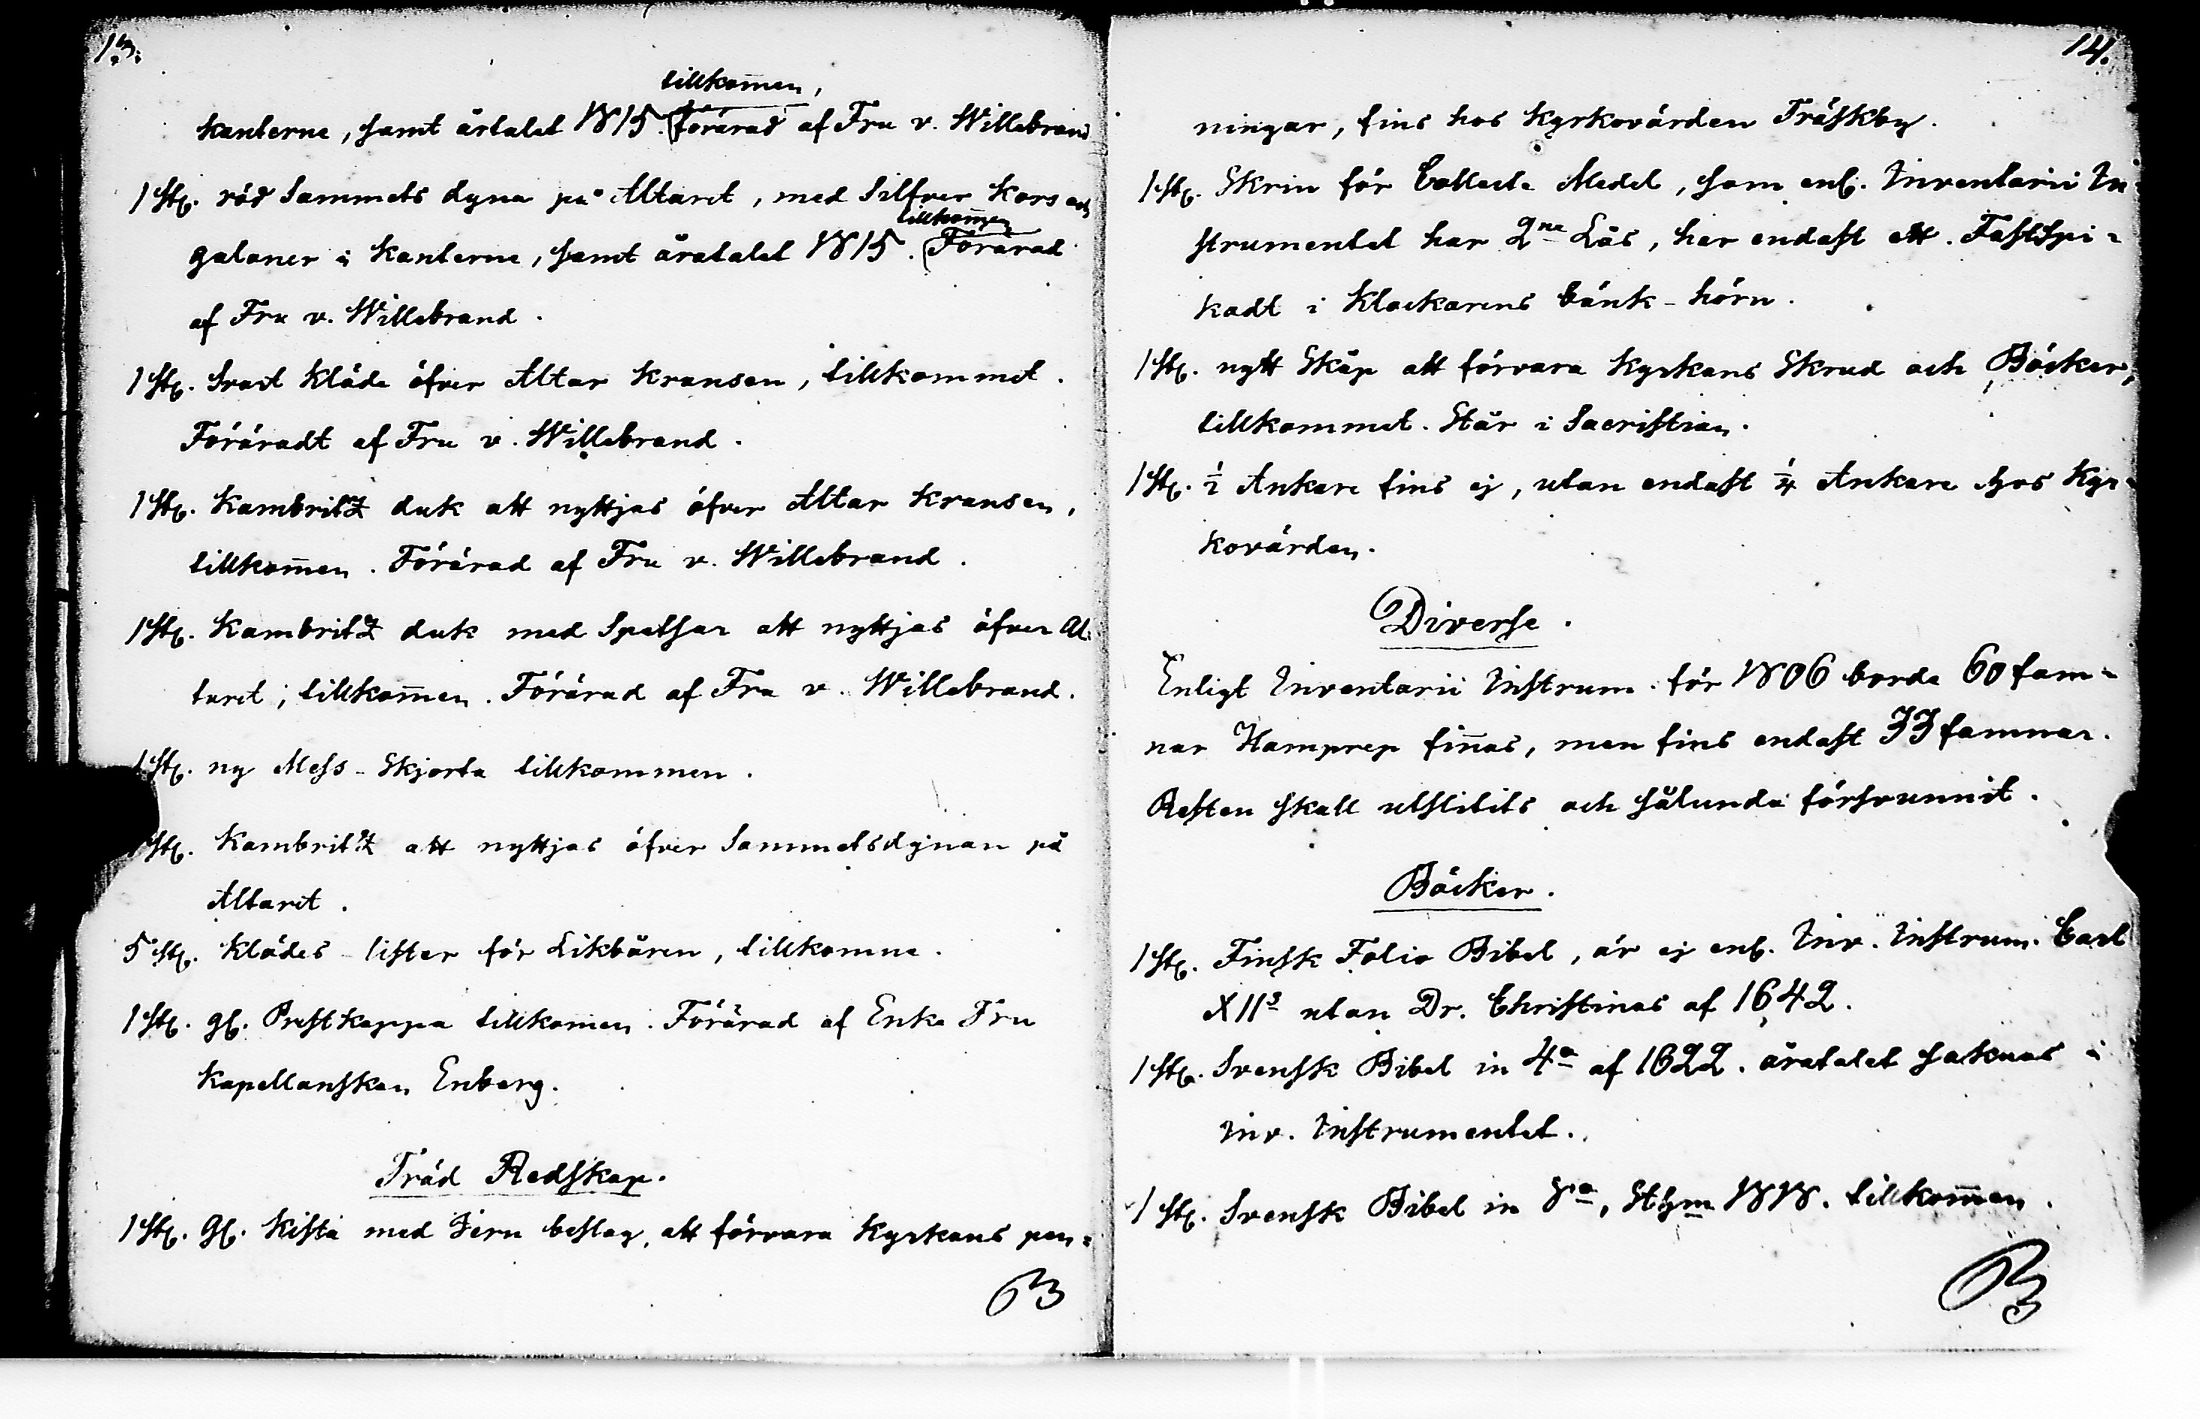 13.
tillkom̅en,
kanterne, samt årtalet 1815. förärad af Fru v. Willebrand
1 st. röd Sammets dyna på Altaret, med Silfver Kors och
tillkom̅en
galoner i kanterne, samt åratalet 1815. Förärad
af Fru v. Willebrand.
1 st. Svart Kläde öfver Altar Kransen, tillkommet.
Föräradt af Fru v. Willebrand.
1 st. Kambritz duk att nyttjas öfver Altar Kransen,
tillkom̅en. Förärad af Fru v. Willebrand.
1 st. Kambritz duk med Spetsar att nyttjas öfver Al-
taret; tillkom̅en. Förärad af Fru v. Willebrand.
1 st. ny Mess-Skjorta tillkommen.
1 st. Kambritz att nyttjas öfver Sammetsdynan på
Altaret.
5 st. Klädes-lister för Likbåren, tillkomne.
1 st. gl. Prestkappa tillkomen. Förärad af Enke Fru
Kapellanskan Enberg.
Träd Redskap.
1 st. Gl. Kista med Jern beslag, att förvara Kyrkans pen=
14.
ningar, fins hos Kyrkovärden Träskby.
1 st. Skrin för Collecte Medel, som enl. Inventarii In-
strumentet har 2ne Lås, har endast ett. Fastspi=
kadt i Klockarens bänk-hörn.
1 st. nytt Skåp att förvara Kyrkans Skrud och Böcker,
tillkommet. Står i Sacristian.
1 st. ½ Ankare fins ej, utan endast ¼ Ankare hos Kyr-
kovärden.
Diverse.
Enligt Inventarii Instrum. för 1806 borde 60 fam=
nar Hamprep fin̅as, men fins endast 33 famnar.
Resten skall utslitits och sålunda försvunnit.
Böcker.
1 st. Finsk Folio Bibel, är ej enl. Inv. Instrum. Carl
XIIs utan Dr. Christinas af 1642.
1 st. Svensk Bibel in 4o af 1622. åratalet saknas i
Inv. Instrumentet.
1 st. Svensk Bibel in 8o, Sthm 1818. tillkom̅en.